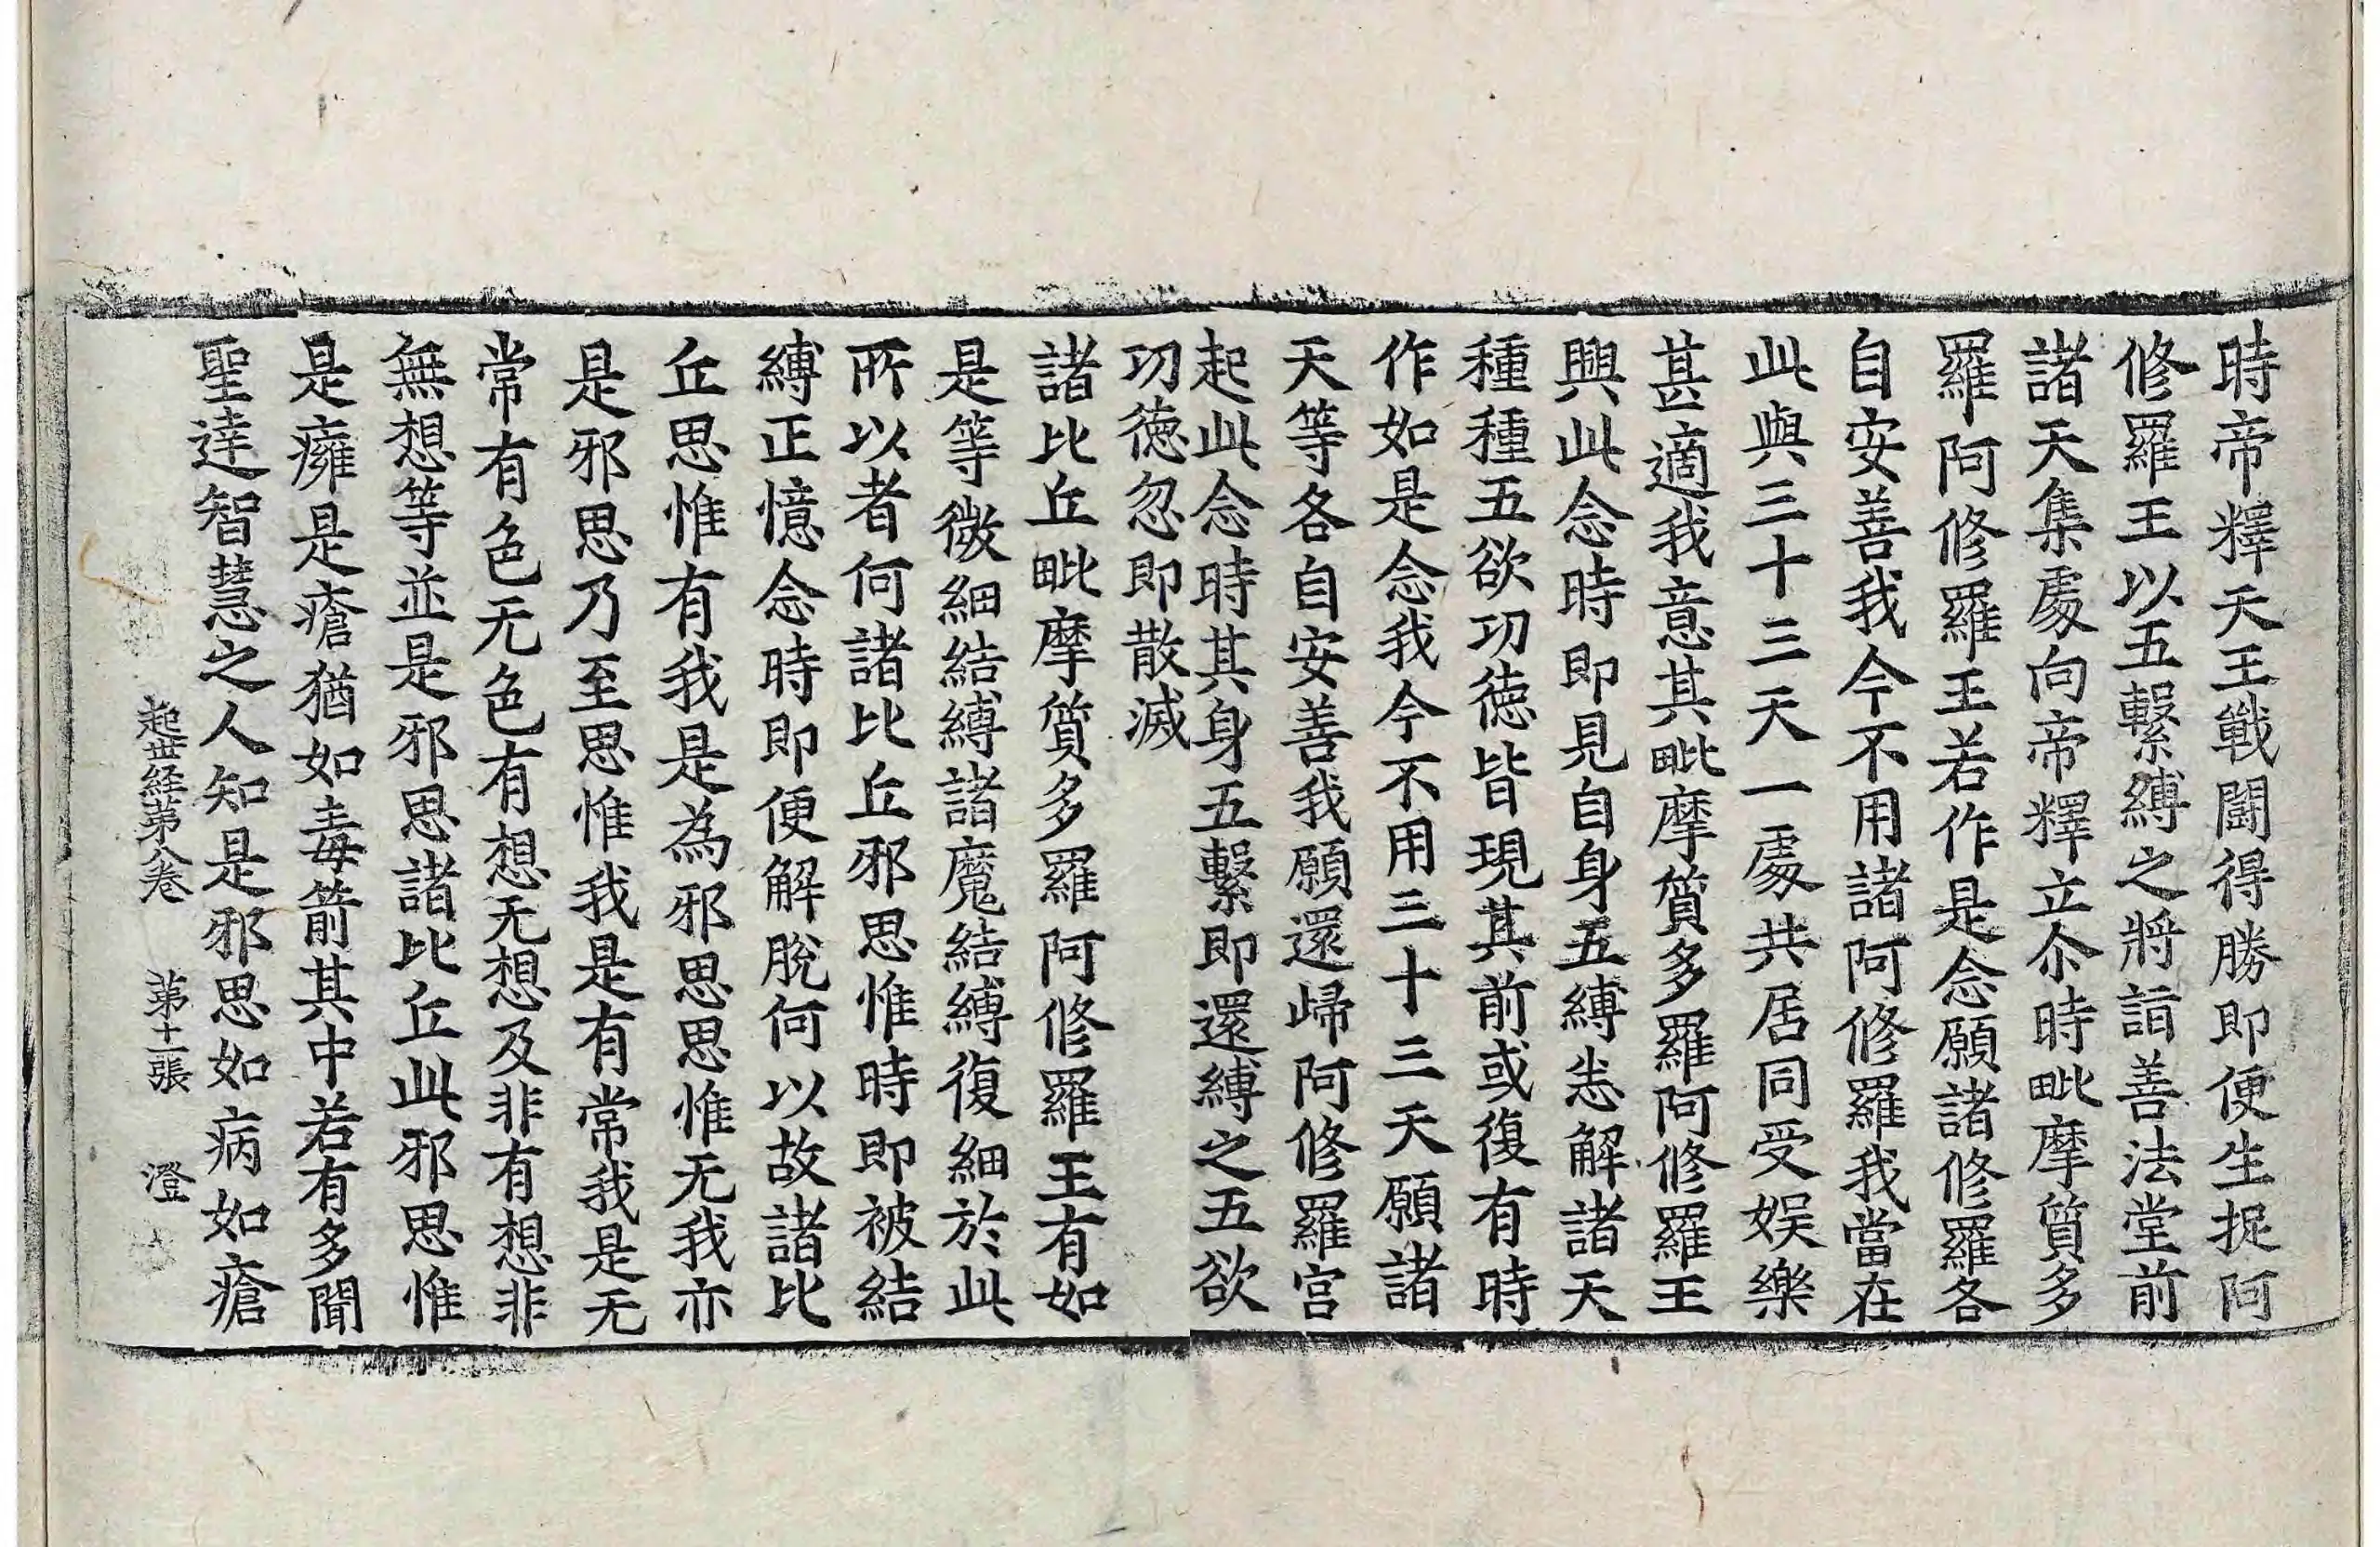 時帝釋天王戰鬪得勝即便生捉阿
修羅王以五繫縛之將詣善法堂前
諸天集處向帝釋立尒時毗摩質多
羅阿修羅王若作是念願諸修羅各
自安善我今不用諸阿修羅我當在
此與三十三天一處共居同受娛樂
甚適我意其毗摩質多羅阿修羅王
興此念時即見自身五縛悉解諸天
種種五欲功德皆現其前或復有時
作如是念我今不用三十三天願諸
天等各自安善我願還歸阿修羅宮
起此念時其身五繫即還縛之五欲
功德忽即散滅
諸比丘毗摩質多羅阿修羅王有如
是等微細結縛諸魔結縛復細於此
所以者何諸比丘邪思惟時即被結
縛正憶念時即便解脫何以故諸比
丘思惟有我是為邪思思惟无我亦
是邪思乃至思惟我是有常我是无
常有色无色有想无想及非有想非
無想等並是邪思諸比丘此邪思惟
是癰是瘡猶如毒箭其中若有多聞
聖達智慧之人知是邪思如病如瘡
起世経第八卷　第十一張　澄